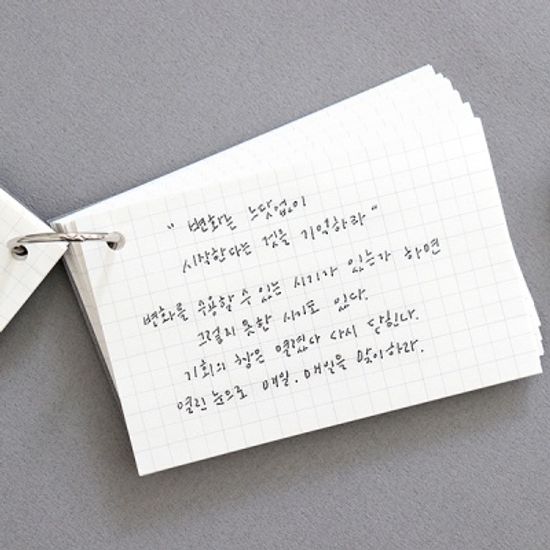 " 변화는 느닷없이
시작한다는 것을 기억하라 "
변화를 수용할 수 있는 시기가 있는가 하면
그렇지 못한 시기도 있다.
기회의 창은 열렸다 다시 닫힌다.
열린 눈으로 매일, 매일을 맞이하라.